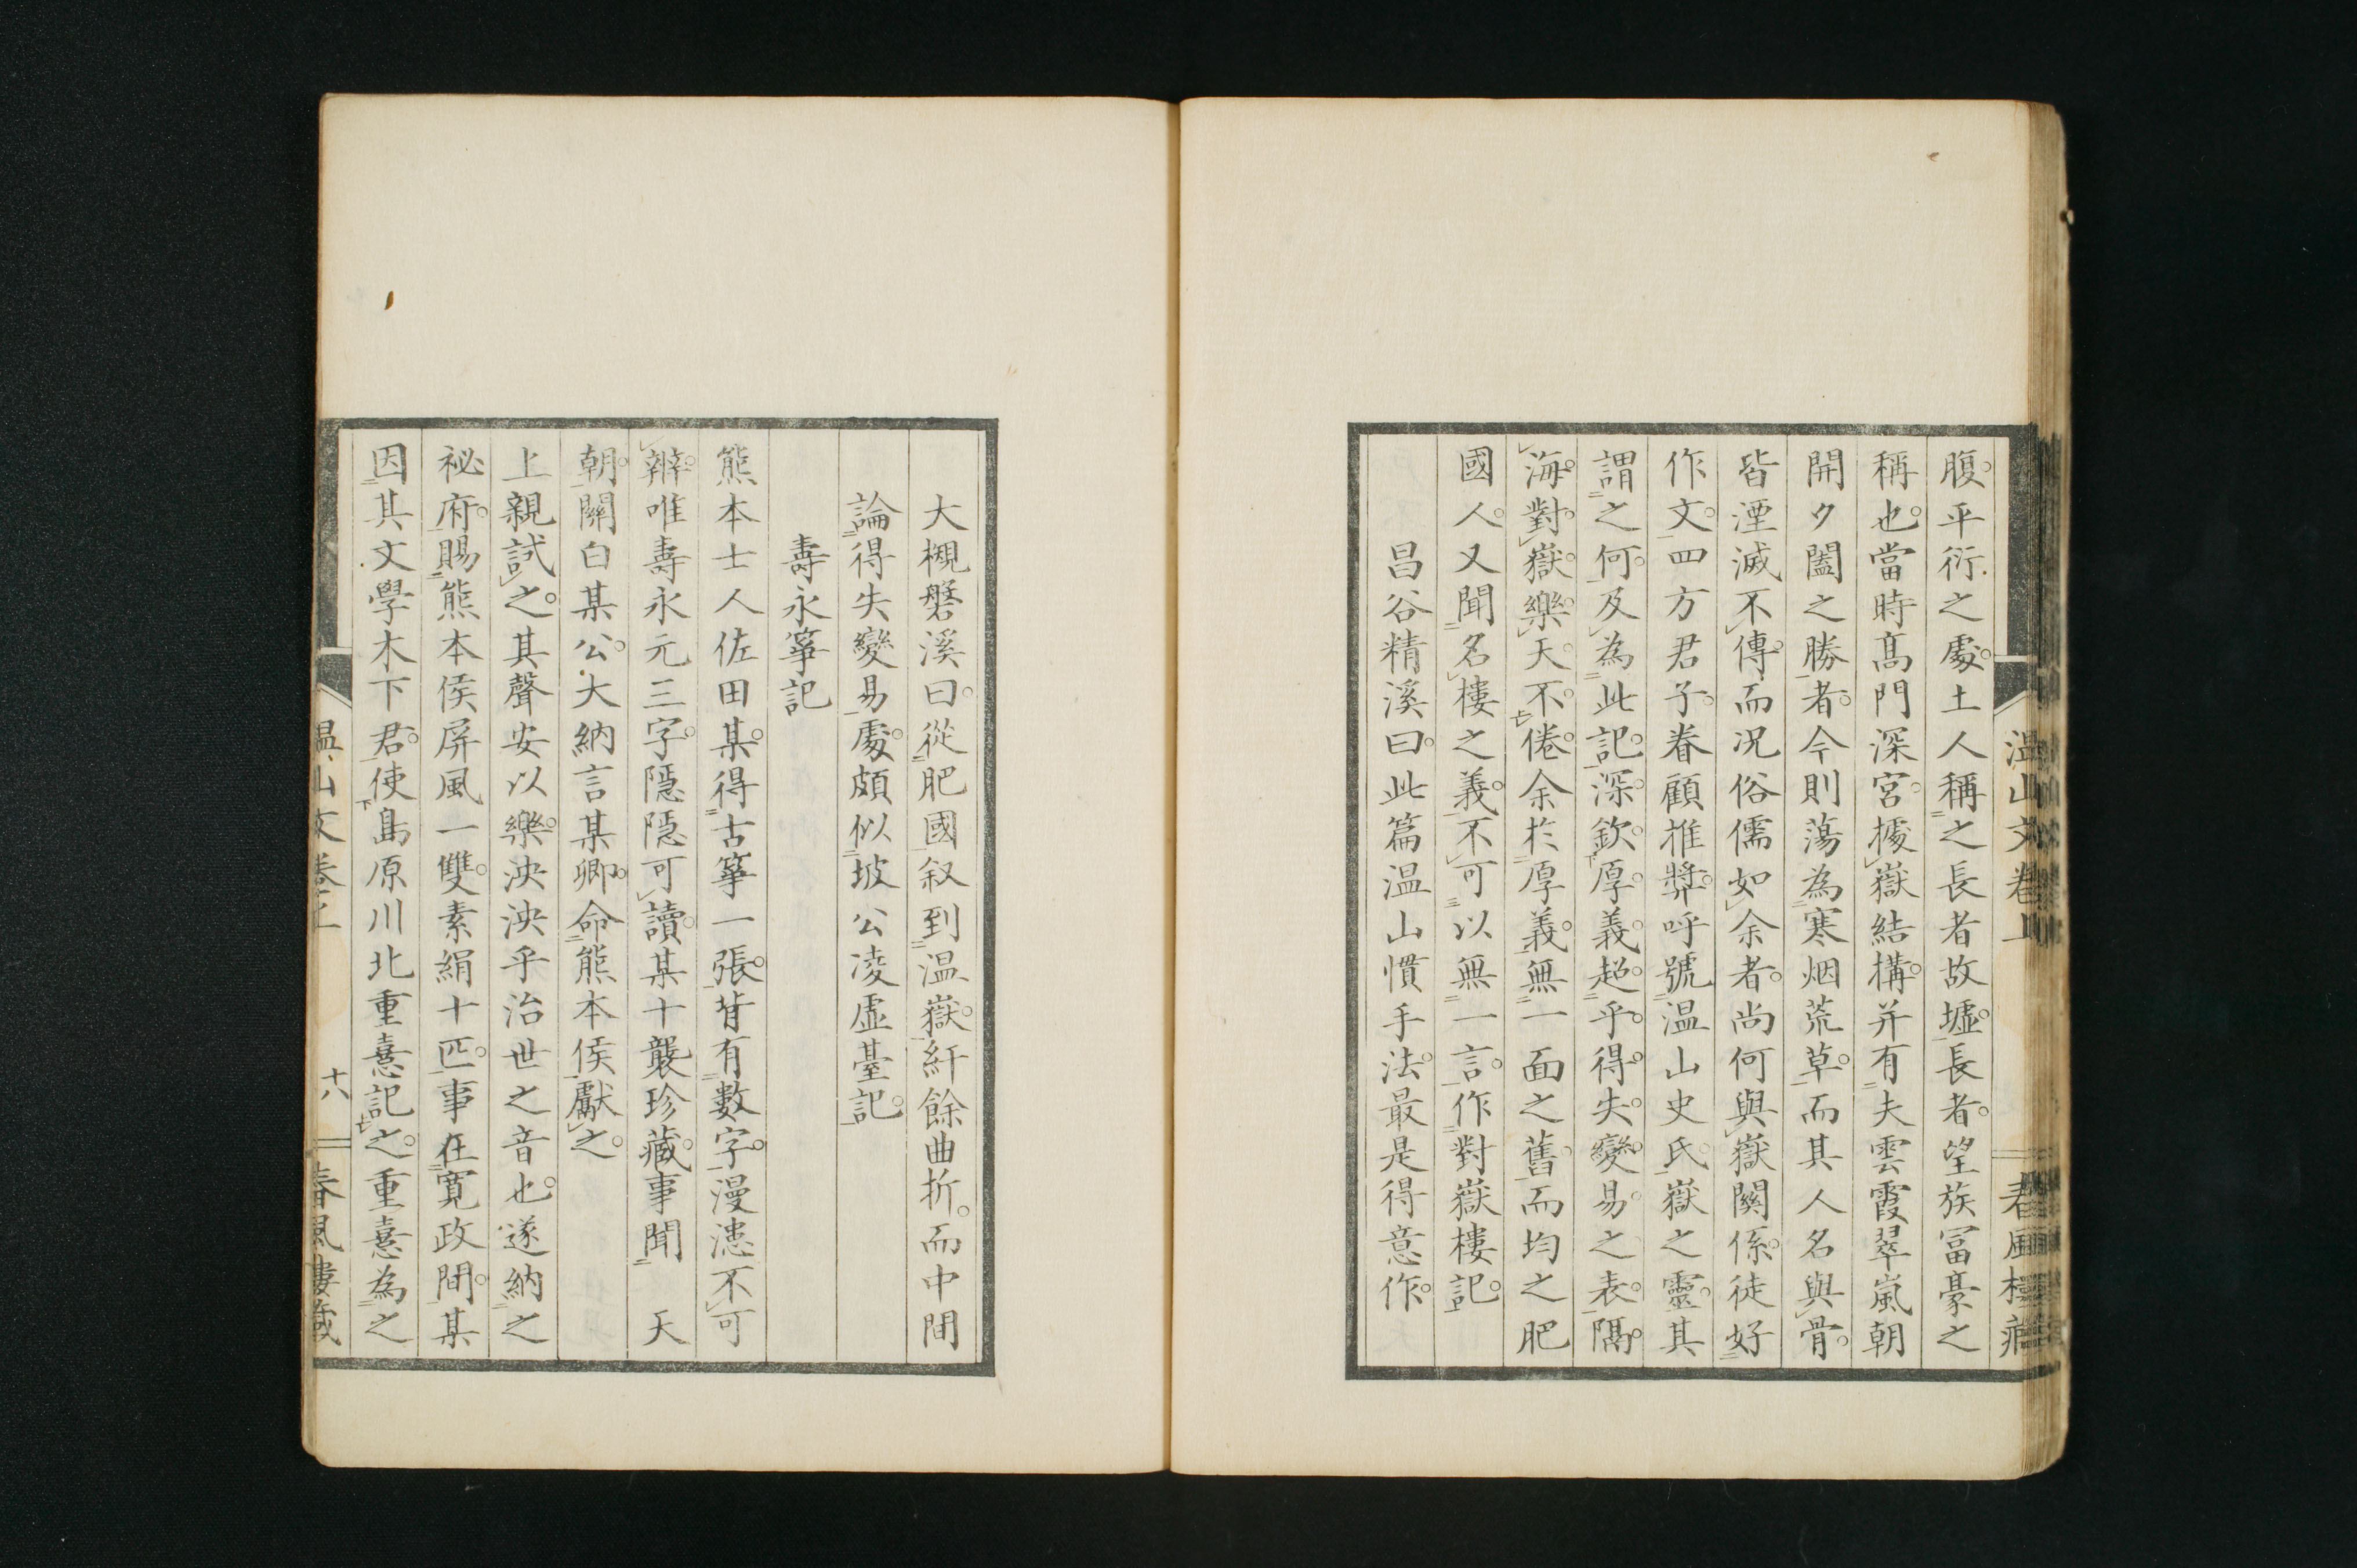 腹平衍之處土人稱之長者故墟長者望族冨豪之
稱也當時髙門深宮據嶽結構并有夫雲霞翠嵐朝
開夕闔之勝者今則蕩為寒烟荒草而其人名與骨
皆湮滅不傳而况俗儒如余者尚何與嶽關係徒好
作文四方君子眷顧推奬呼號温山史氏嶽之靈其
謂之何及為此記深欽厚義超乎得失變易之表隔
海對嶽樂天不倦余於厚義無一面之舊而均之肥
國人又聞名樓之義不可以無一言作對嶽樓記
昌谷精溪曰此篇温山慣手法最是得意作
温山文卷上
春風樓藏
大槻磐溪曰從肥國叙到温嶽紆餘曲折而中間
論得失變易處頗似坡公凌虛臺記
壽永箏記
熊本士人佐田某得古箏一張背有數字漫漶不可
辨唯壽永元三字隱隱可讀某十襲珍藏事聞 天
朝關白某公大納言某卿命熊本侯獻之
上親試之其聲安以樂泱泱乎治世之音也遂納之
祕府賜熊本侯屏風一雙素絹十匹事在寛政間某
因其文學木下君使島原川北重憙記之重憙為之
温山文卷上
十八
春風樓藏